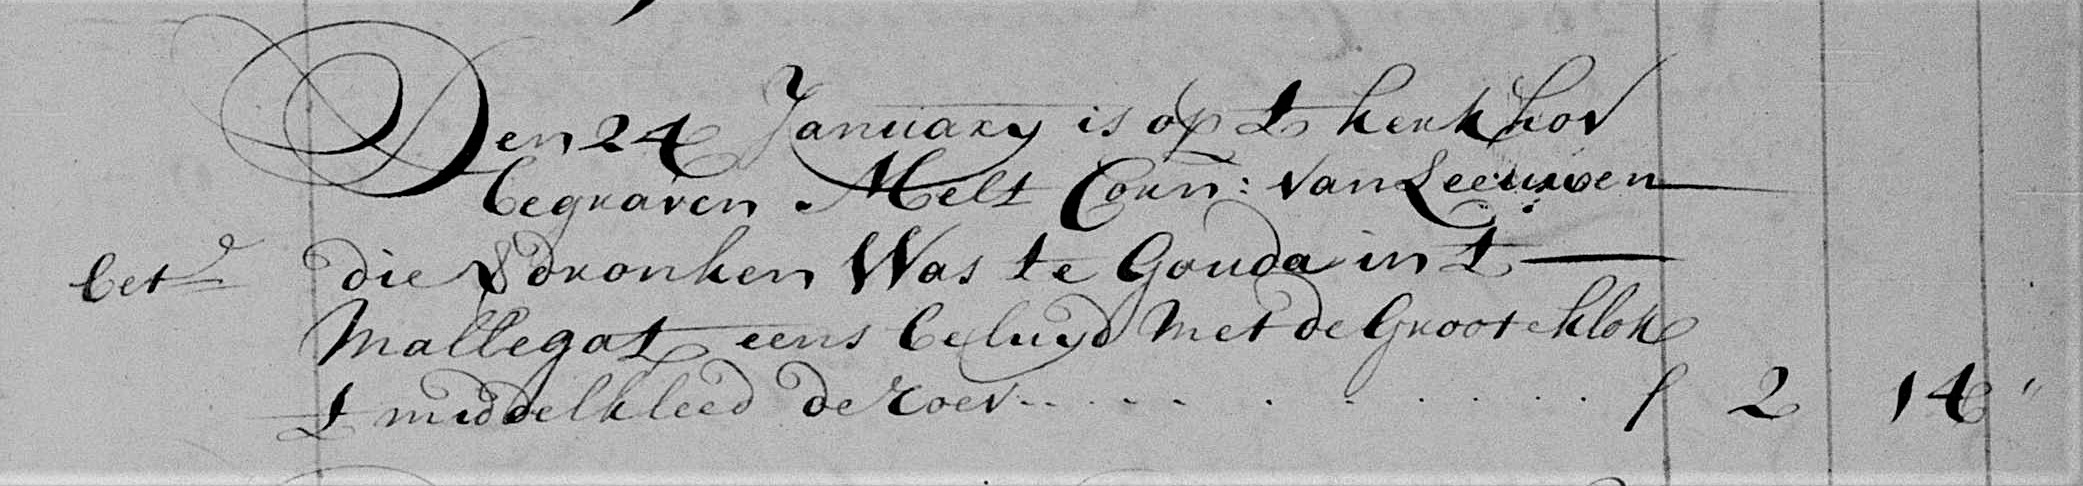 Den 24 January is op t kerk hov
begraven Melt Corn: van Leeuwen
bet.d die Vdronken Was te Gouda in t
Mallegat eens beluyd Met de Groote klok
t middelkleed de roev . . . . . . . . . . ƒ 2 14 "